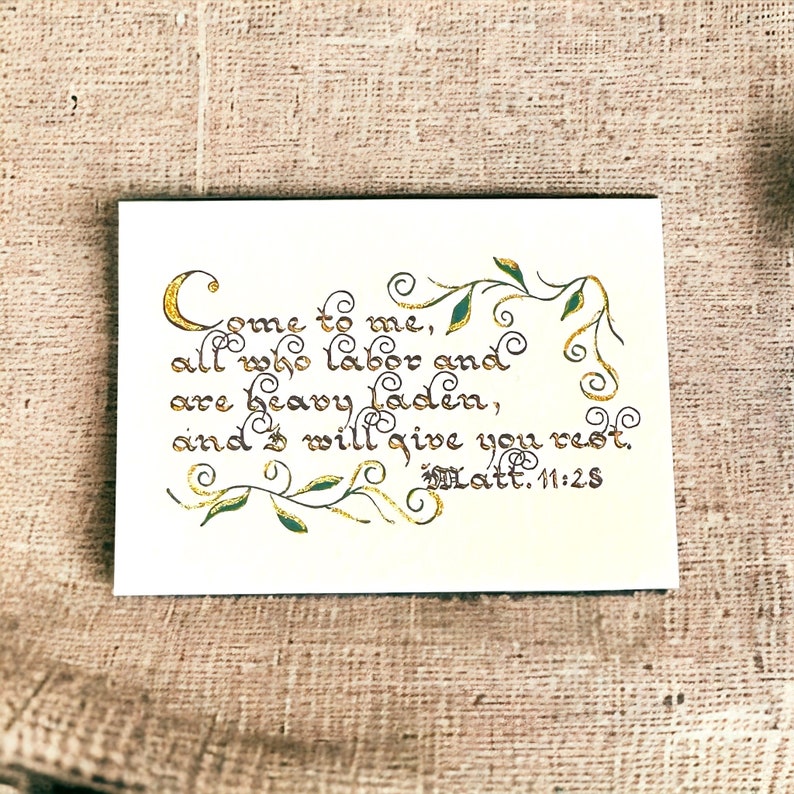 Come to me,
all who labor and
are heavy laden,
and I will give you rest.
Matt. 11:28